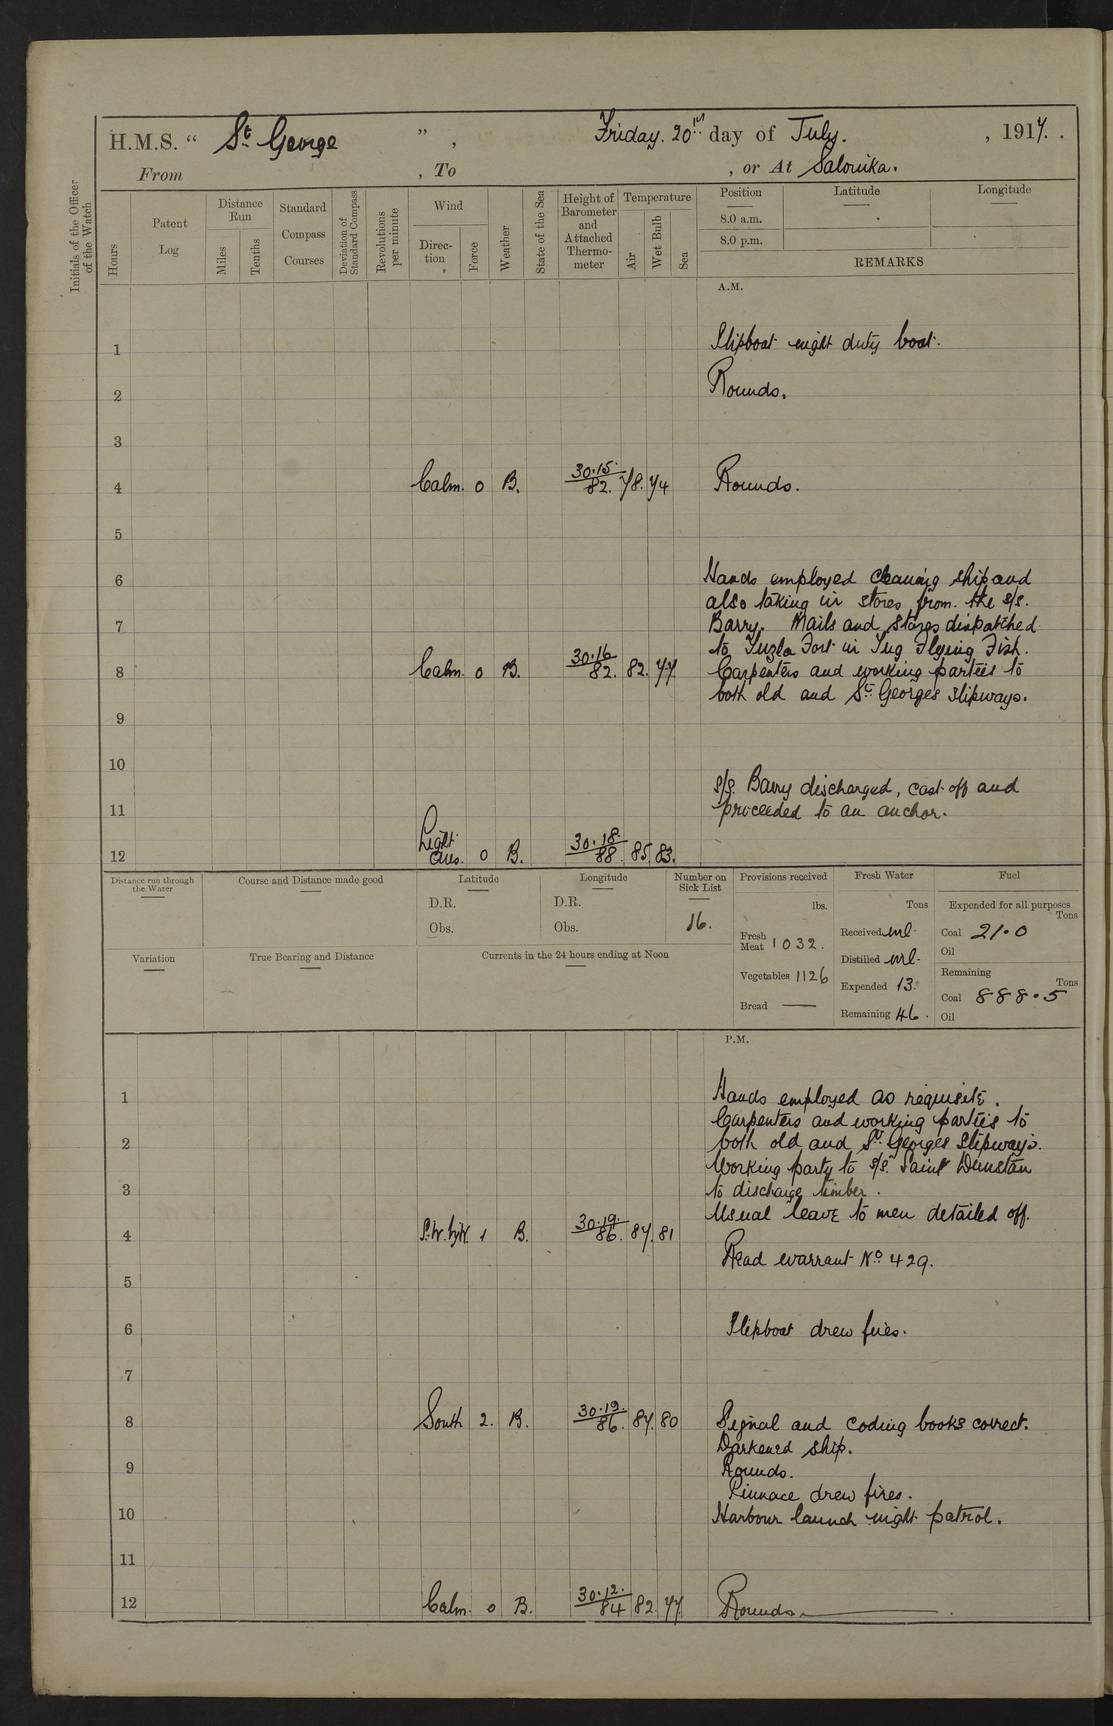 H.M.S. " St. George " , Friday. 20th day of July. , 1917. .
From , To , or At Salonika.
Initials of the Officer of the Watch
Hours
Patent Log
Distance Run
Miles
Tenths
Standard Compass Courses
Deviation of Standard Compass
Revolutions per minute
Wind
Direc-tion
Force
Weather
State of the Sea
Height of Barometer and Attached Thermo-meter
Temperature
Air
Wet Bulb
Sea
Position Latitude Longitude
8.0 a.m.
8.0 p.m.
REMARKS
A.M.
1 Slipboat night duty boat.
2 Rounds.
3
4 Calm. 0 B. 30.15/82. 78. 74 Rounds.
5
6 Hands employed cleaning ship and
also taking in stores from the s/s.
7 Barry. Mails and stores dispatched
to Tuzla Fort in Tug Flying Fish.
8 Calm. 0 B. 30.16/82. 82. 77. Carpenters and working parties to
both old and St. Georges slipways.
9
10
s/s. Barry discharged, cast off and
11 proceeded to an anchor.
12 Light airs. 0 B. 30.18./88. 85. 83.
Distance run through the Water
Course and Distance made good
Latitude
D.R.
Obs.
Longitude
D.R.
Obs.
Number on Sick List
16.
Provisions received
lbs.
Fresh Meat 1032.
Vegetables 1126
Bread —
Fresh Water
Tons
Received nil.
Distilled nil.
Expended 13.
Remaining 46.
Fuel
Expended for all purposes
Tons
Coal 21.0
Oil
Remaining
Tons
Coal 888.5
Oil
Variation
True Bearing and Distance
Currents in the 24 hours ending at Noon
P.M.
1 Hands employed as requisite.
Carpenters and working parties to
2 both old and St. Georges Slipways.
Working party to s/s. Saint Dunstan
3 to discharge timber.
Usual leave to men detailed off.
4 S.W.byW. 1 B. 30.19./86. 87. 81
Read warrant No. 429.
5
6 Slipboat drew fires.
7
8 South 2. B. 30.19./86. 87. 80 Signal and coding books correct.
Darkened ship.
9 Rounds.
Pinnace drew fires.
10 Harbour launch night patrol.
11
12 Calm. 0 B. 30.12./84 82. 77. Rounds.